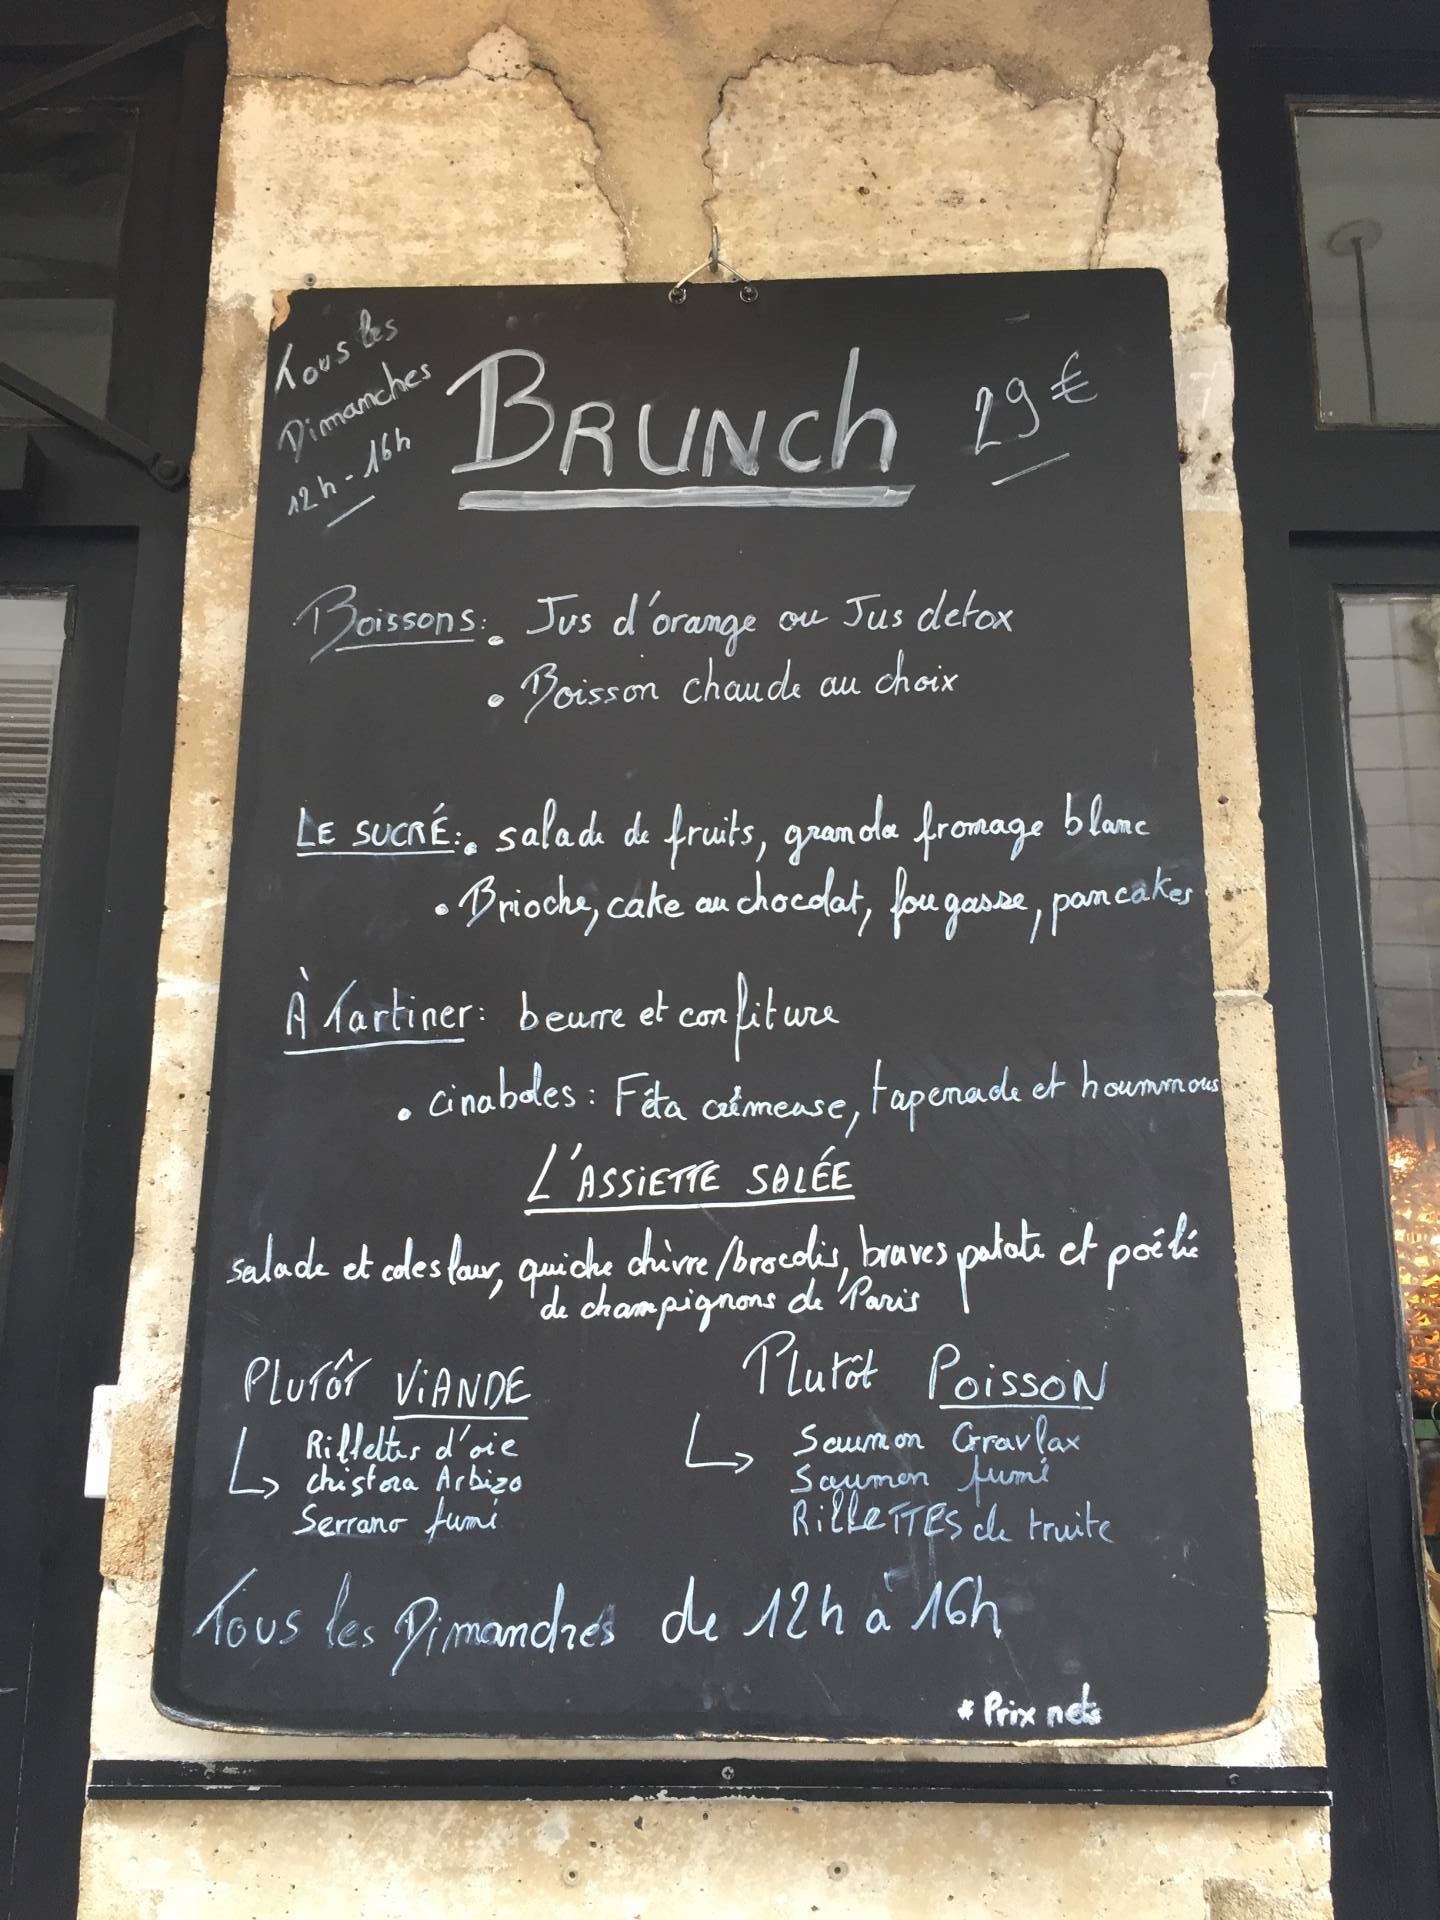 Tous les
Dimanches
12h-16h
BRUNch
29€
Boissons: • Jus d'orange ou Jus detox
• Boisson chaude au choix
LE SUCRÉ: • salade de fruits, granola fromage blanc
• Brioche, cake au chocolat, fougasse, pancakes
À Tartiner: beurre et confiture
• cinabales: Fêta crémeuse, tapenade et hoummous
L'ASSIETTE SALÉE
salade et coleslaw, quiche chèvre/brocolis, braves patate et poêlé
de champignons de Paris
PLUTÔT VIANDE
Rillettes d'oie
chistora Arbizo
Serrano fumé
Plutôt POISSON
Saumon Gravlax
Saumon fumé
RILLETTES de truite
Tous les Dimanches de 12h à 16h
* Prix nets